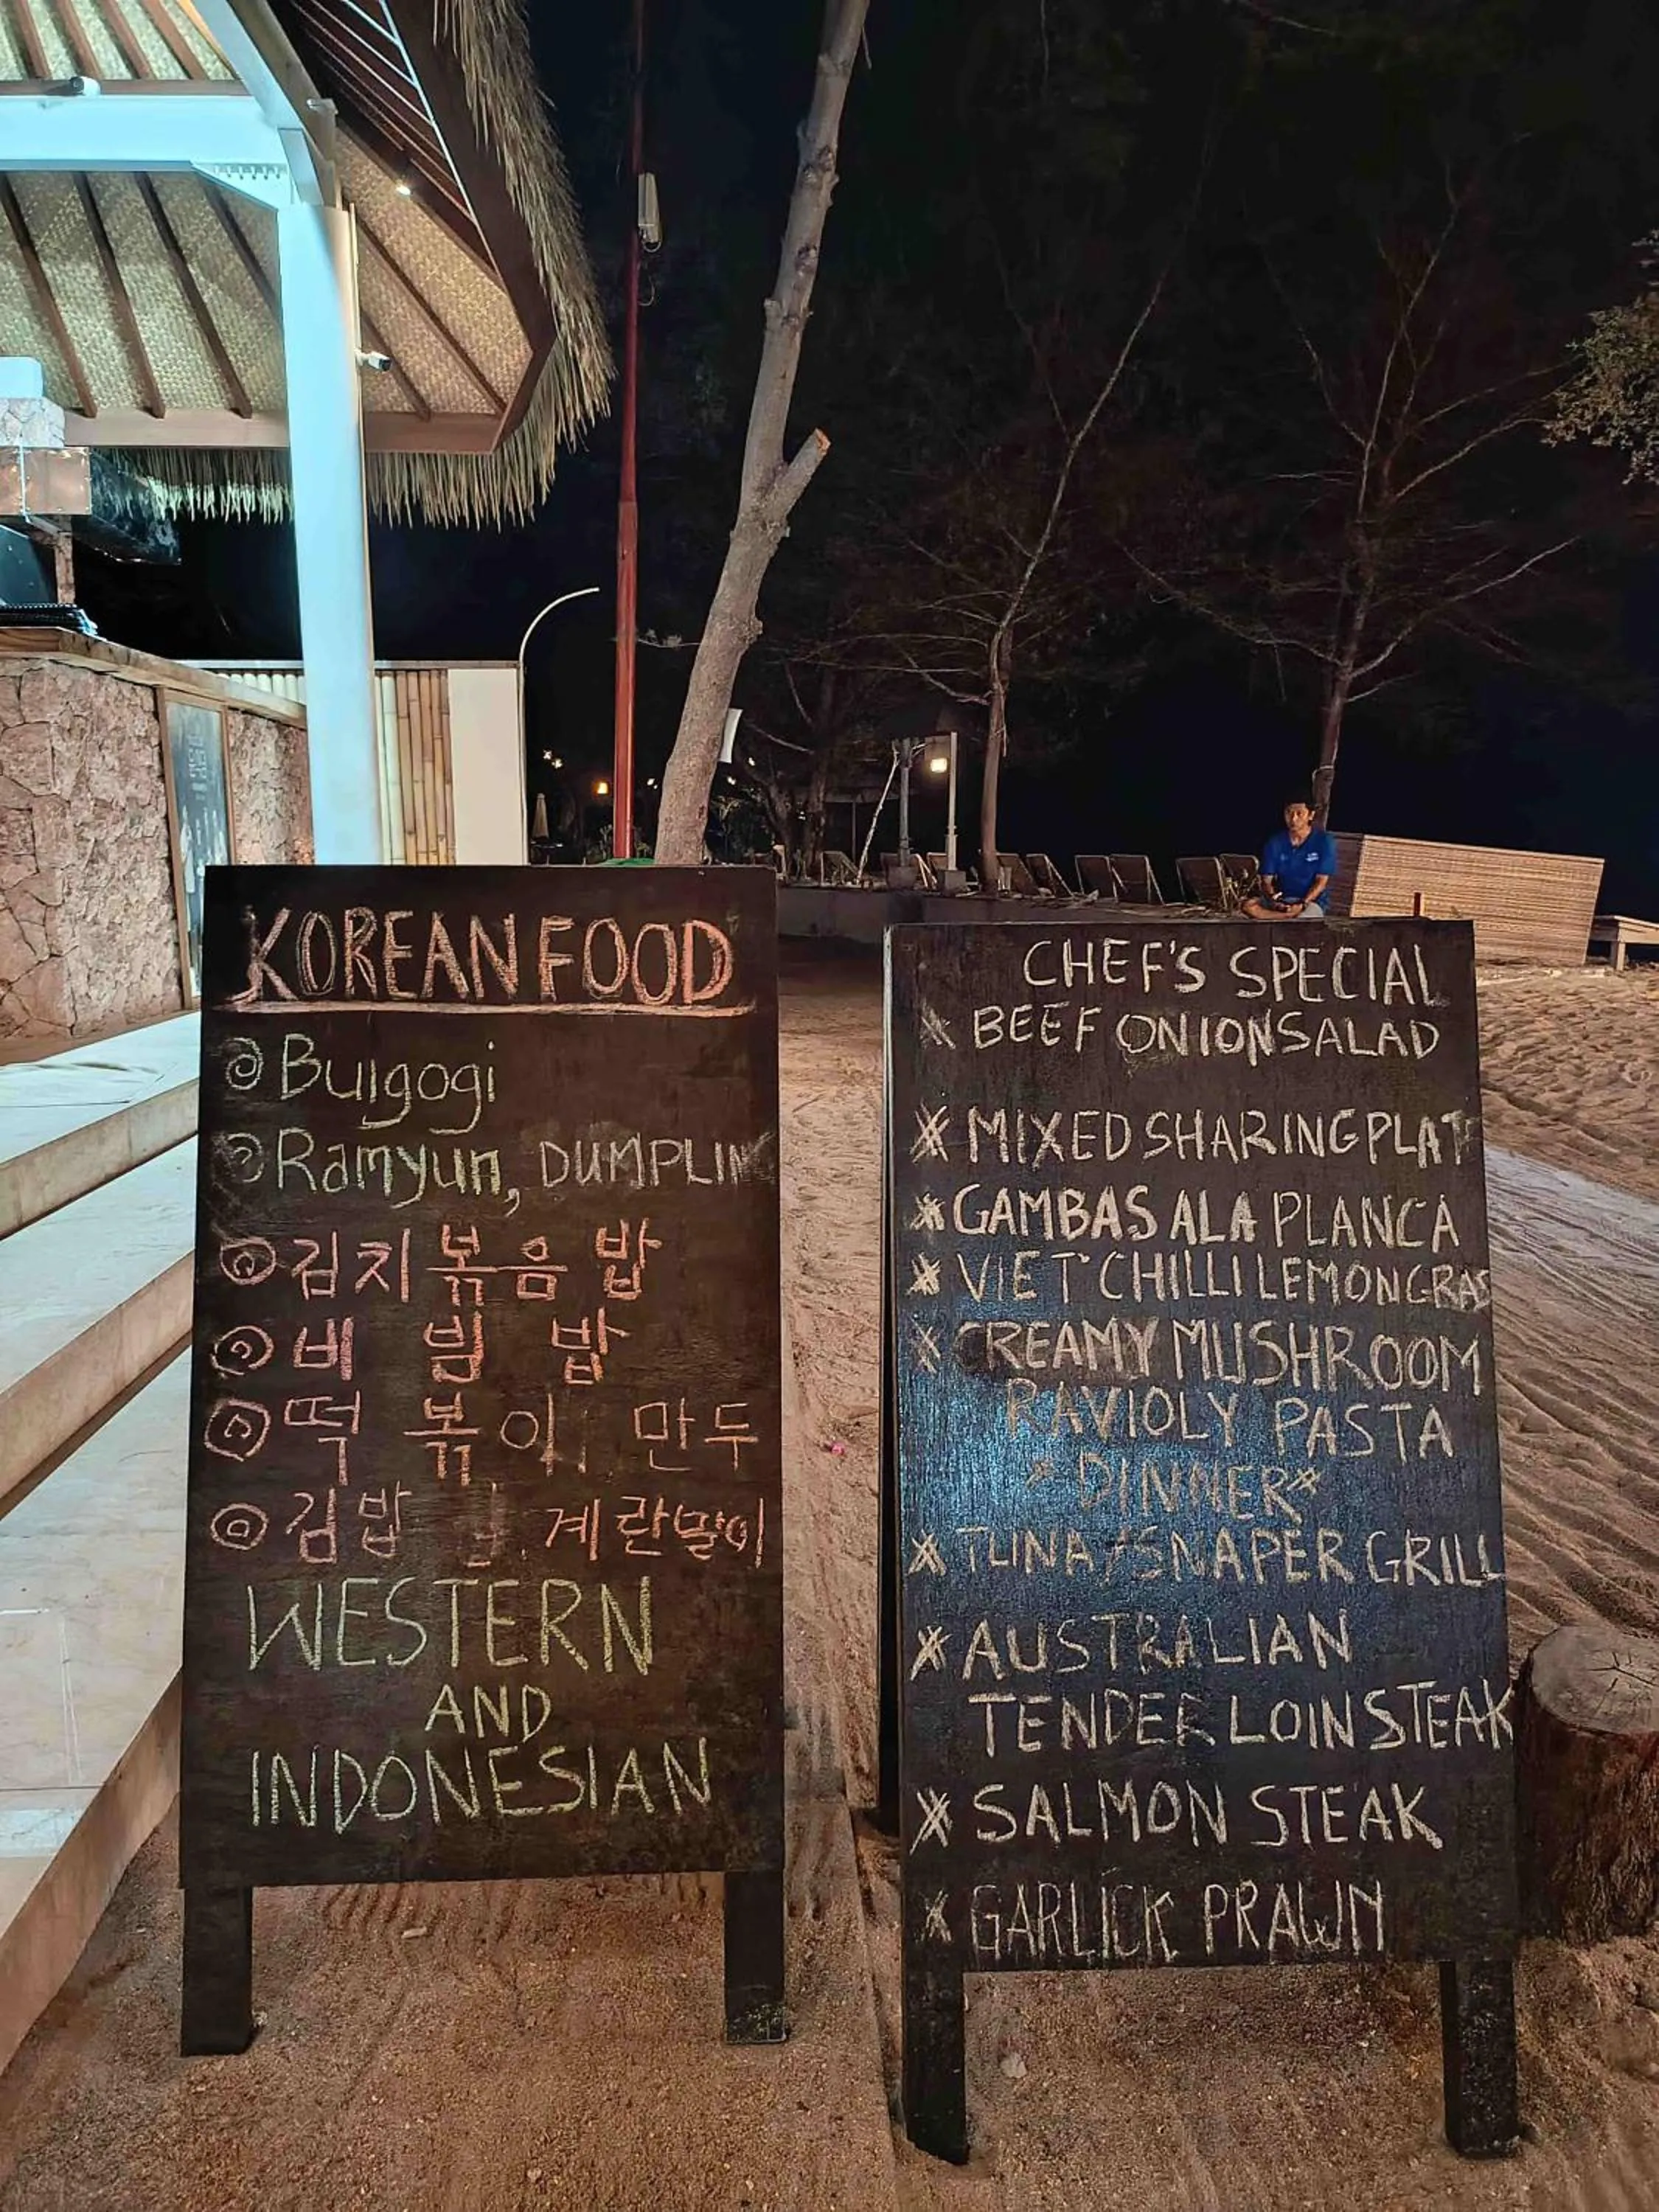 KOREAN FOOD
Bulgogi
Ramyun, DUMPLING
김치볶음밥
비빔밥
떡볶이, 만두
김밥, 계란말이
WESTERN
AND
INDONESIAN
CHEF'S SPECIAL
BEEF ONION SALAD
MIXED SHARING PLAT
GAMBAS ALA PLANCA
VIET CHILLI LEMONGRAS
CREAMY MUSHROOM
RAVIOLY PASTA
*DINNER*
TUNA/SNAPER GRILL
AUSTRALIAN
TENDERLOIN STEAK
SALMON STEAK
GARLICK PRAWN